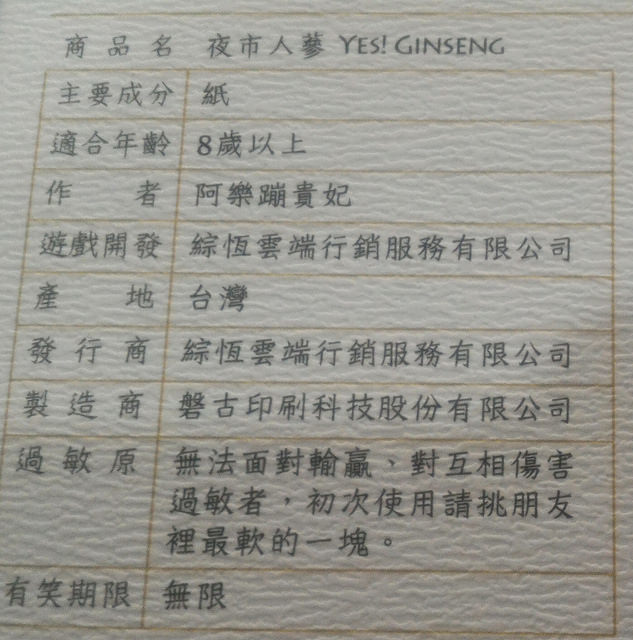 商品名 夜市人蔘 YES! GINSENG
主要成分 紙
適合年齡 8歲以上
作者 阿樂蹦貴妃
遊戲開發 綜恆雲端行銷服務有限公司
產地 台灣
發行商 綜恆雲端行銷服務有限公司
製造商 磐古印刷科技股份有限公司
過敏原 無法面對輸贏、對互相傷害
過敏者，初次使用請挑朋友
裡最軟的一塊。
有笑期限 無限